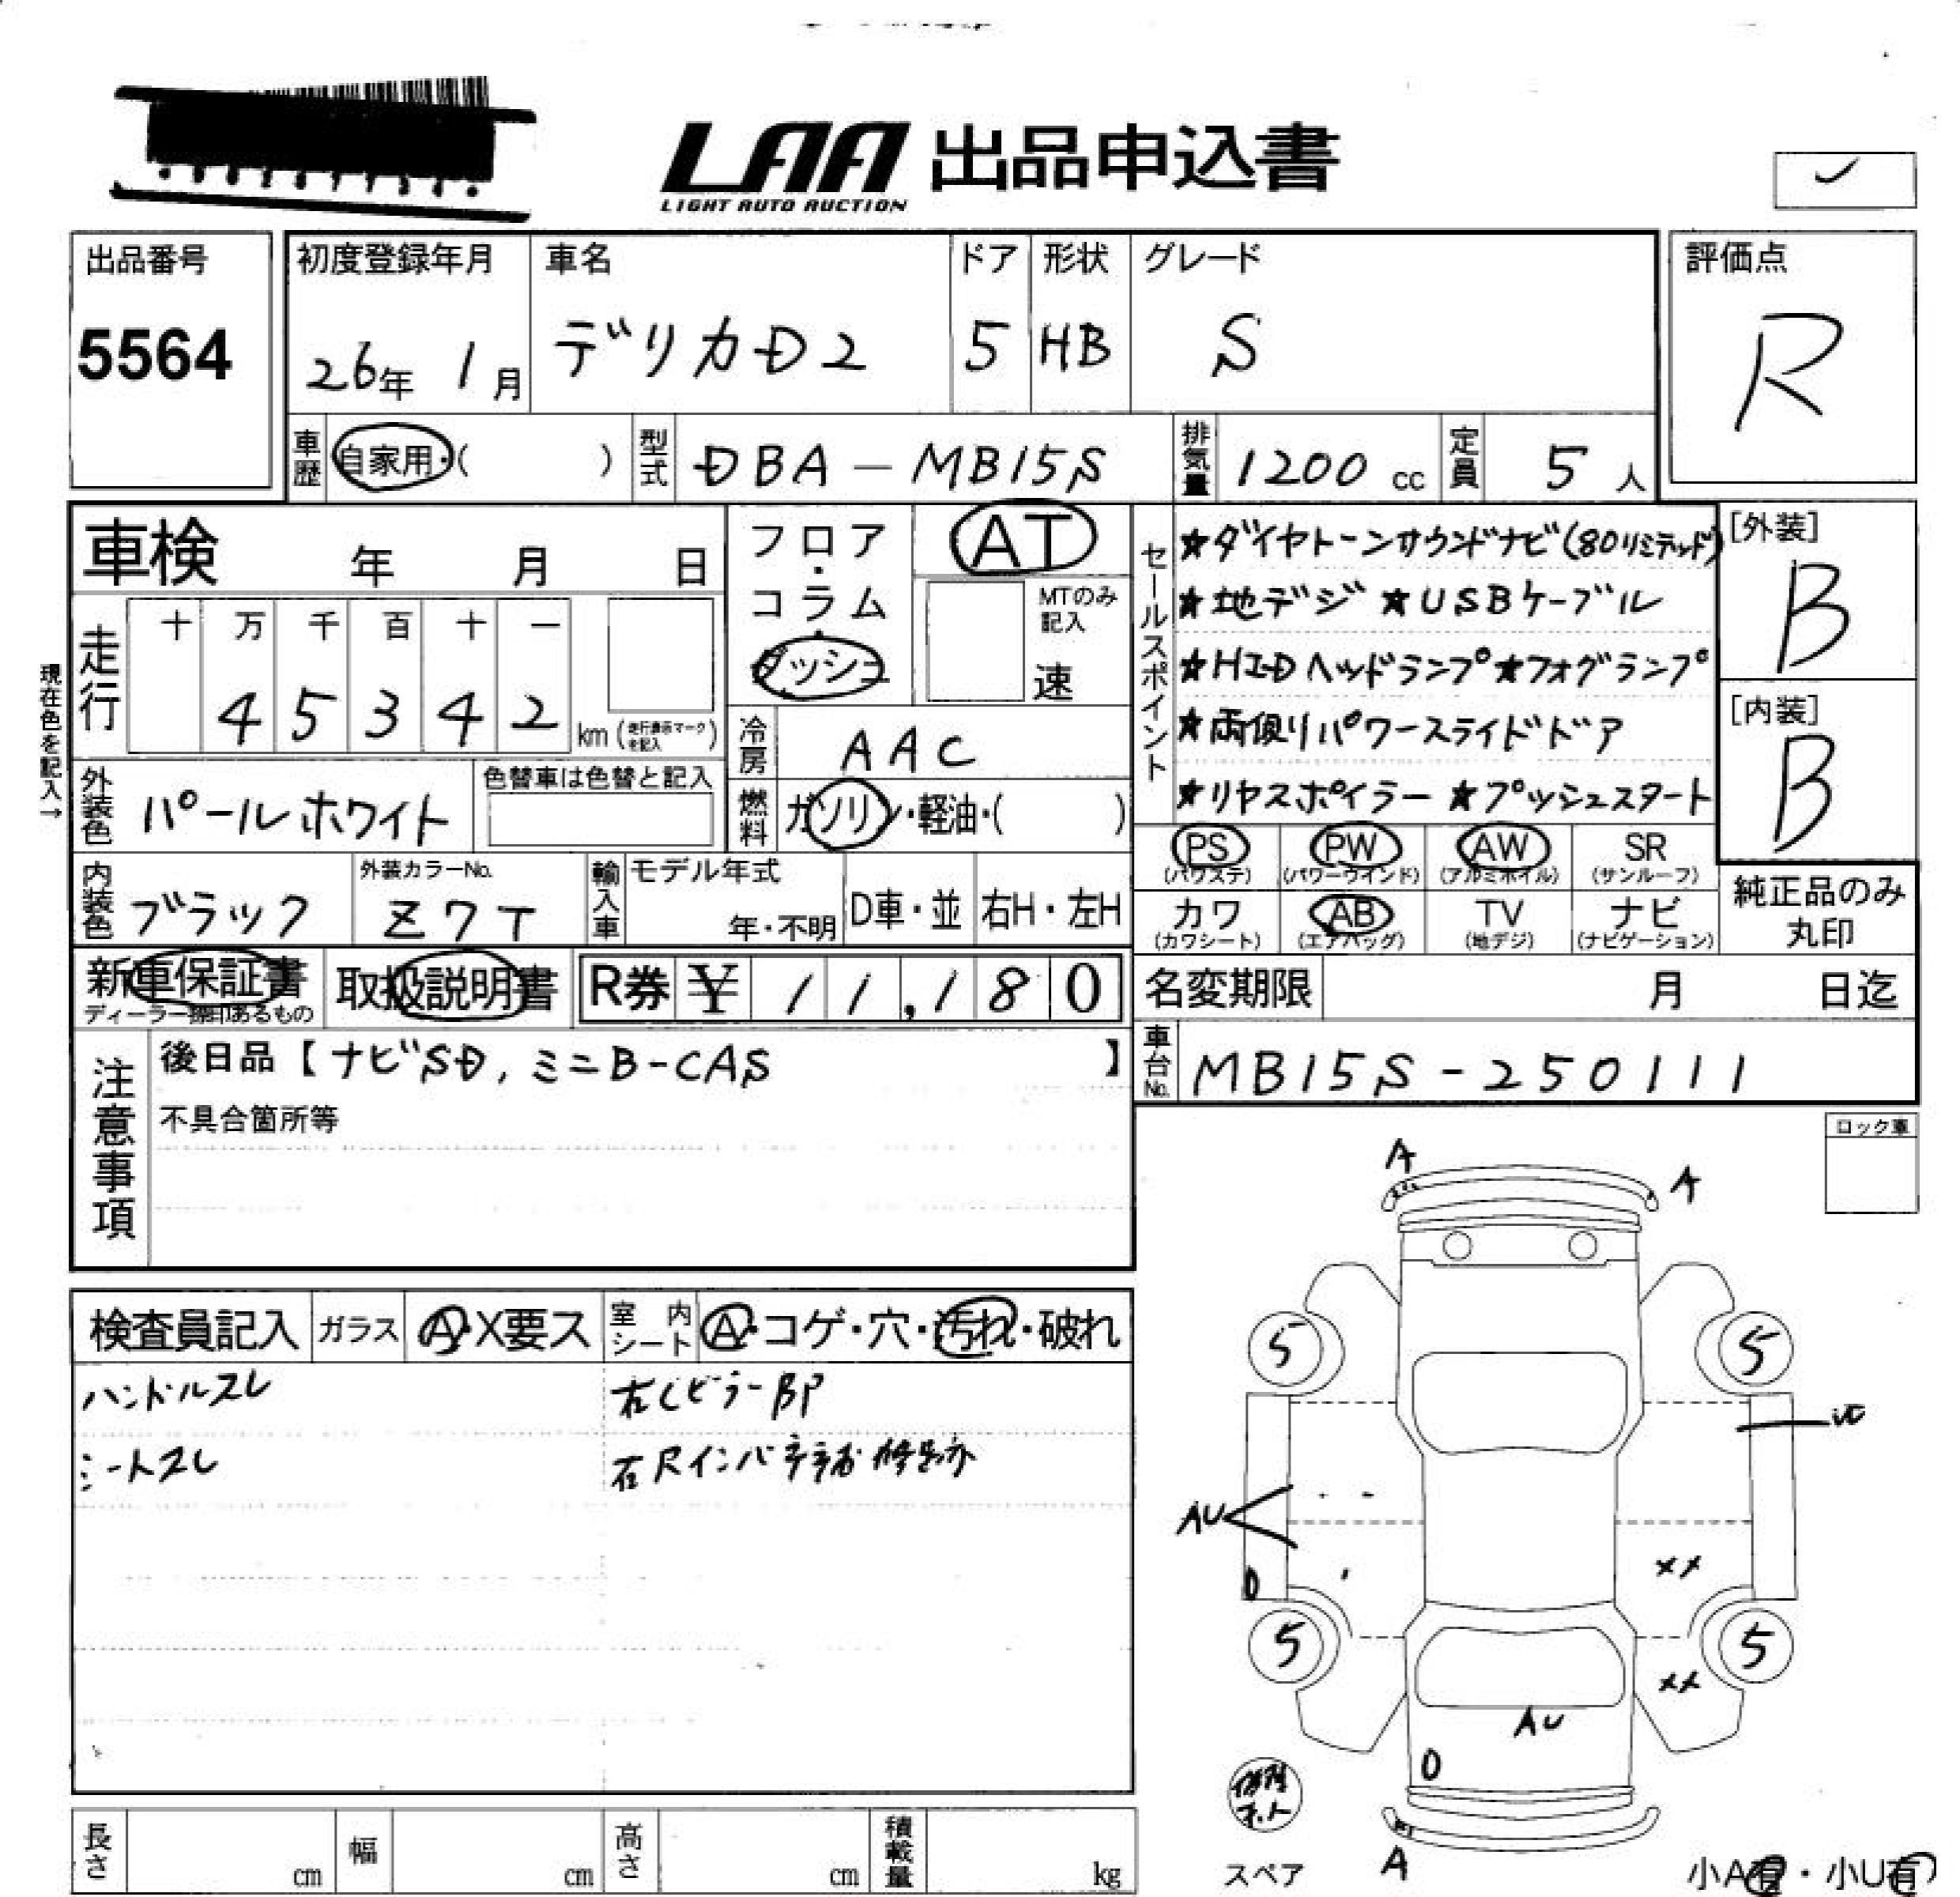 LAA 出品申込書
LIGHT AUTO AUCTION
出品番号
5564
初度登録年月 車名 ドア 形状 グレード
26年 1月 デリカD2 5 HB S
評価点
R
車歴 自家用・( ) 型式 DBA-MB15S 排気量 1200 cc 定員 5 人
車検 年 月 日
フロア・コラム・ダッシュ
AT
MTのみ記入
速
セールスポイント
★ダイヤトーンサウンドナビ(80リミテッド)
★地デジ ★USBケーブル
★HIDヘッドランプ ★フォグランプ
★両側パワースライドドア
★リヤスポイラー ★プッシュスタート
[外装]
B
[内装]
B
現在色を記入→
走行 十 万 千 百 十 一
4 5 3 4 2 km (走行表示マークを記入)
冷房 AAC
外装色 パールホワイト 色替車は色替と記入
燃料 ガソリン・軽油・( )
PS (パワステ) PW (パワーウインド) AW (アルミホイル) SR (サンルーフ)
カワ (カワシート) AB (エアバッグ) TV (地デジ) ナビ (ナビゲーション)
純正品のみ丸印
内装色 ブラック 外装カラーNo. Z7T 輸入車 モデル年式 年・不明 D車・並 右H・左H
新車保証書 取扱説明書 R券 ¥ 11,180
ディーラー捺印あるもの
名変期限 月 日迄
車台No. MB15S-250111
注意事項
後日品【ナビSD, ミニB-CAS】
不具合箇所等
ロック車
検査員記入 ガラス A・X要ス 室内シート A・コゲ・穴・汚れ・破れ
ハンドルスレ 右Cピラー BP
シートスレ 右Rインパネ
A A
5 5
AU
0
××
5 5
××
AU
0
A
スペア
小A有・小U有
長さ cm 幅 cm 高さ cm 積載量 kg